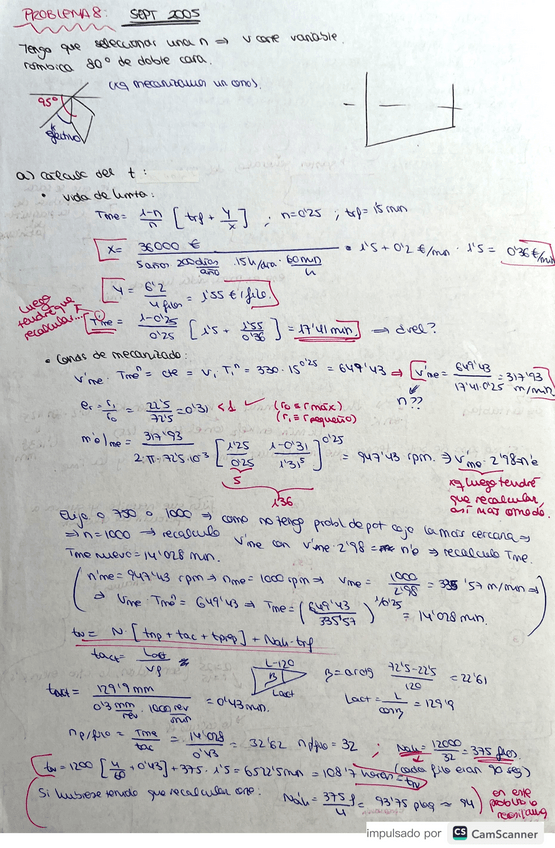 PROBLEMA 8: SEPT 2005
Tengo que seleccionar una n ⇒ v corte variable.
rómbica 80° de doble cara.
(xq mecanizamos un cono).
95°
efectivo
a) calculo del t:
• vida de
Tme = 1-n/n [trf + y/x] ; n=0'25 ; trf = 1'5 min
X = 36000 € / 5 años 200 días/año · 15 h/día · 60 min/h · 1'5 + 0'2 €/min · 1'5 = 0'36 €/min
Y = 6'2 / 4 filos = 1'55 €/filo.
luego tendré que recalcular...
Tme = 1-0'25 / 0'25 [1'5 + 1'55/0'36] = 17'41 min. ⇒ d vel?
• Conds de mecanizado:
V'me · Tme^n = cte = V1 T1^n = 330 · 15^0'25 = 649'43 ⇒ V'me = 649'43 / 17'41^0'25 = 317'93 m/min
n??
er = r1/r0 = 22'5/72'5 = 0'31 < 1 ✓ (r0 ≡ r máx)
(r1 ≡ r pequeño)
n'o|me = 317'93 / 2·π·72'5·10^-3 [1'25/0'25 1-0'31/1'31^5]^0'25 = 947'43 rpm. ⇒ V'me · 2'98 = n'e
5
1'36
xq luego tendré que recalcular, así más cómodo.
Elijo o 750 o 1000 ⇒ como no tengo probl de pot cojo la más cercana ⇒
⇒ n=1000 → recalculo V'me con V'me · 2'98 = n'o ⇒ recalculo Tme.
Tme nuevo = 14'028 min.
(n'me = 947'43 rpm ⇒ nme = 1000 rpm ⇒ Vme = 1000/2'98 = 335'57 m/min ⇒
⇒ Vme · Tme^n = 649'43 ⇒ Tme = (649'43/335'57)^1/0'25 = 14'028 min.)
tv = N [tnp + tac + tprep] + Nafi · trf
tact = Lact/Vf
L=120
B
Lact
B = arctg 72'5-22'5 / 120 = 22'61
tact = 129'9 mm / 0'3 mm/rev · 1000 rev/min = 0'43 min.
Lact = L/cosB = 129'9
np/filo = Tme/tac = 14'028/0'43 = 32'62 np/filo = 32 ; Nafi = 12000/32 = 375 filos.
(cada filo eran 90 seg)
tv = 1200 [4/60 + 0'43] + 375 · 1'5 = 6522'5 min = 108'7 horas = tv
Si hubiese tenido que recalcular : Nafi = 375 f/4 = 93'75 plaq ≈ 94
en este problema no